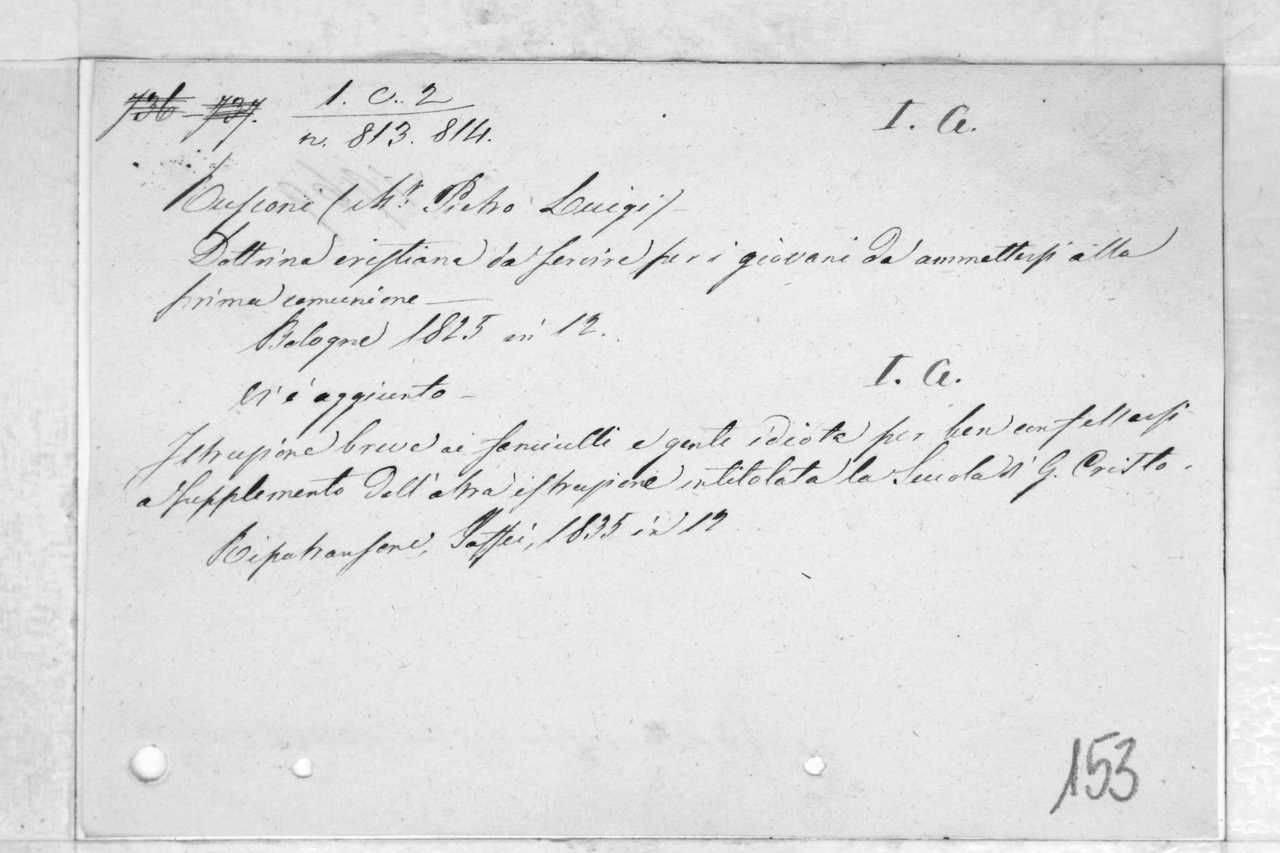 736 - 737. 1. C. 2 I. A.
n. 813. 814.
Rusconi (Mr. Pietro Luigi)
Dottrina cristiana da servire per i giovani da ammettersi alla
prima comunione —
Bologna 1825 in 12.
I. A.
vi è aggiunto —
Istruzione breve ai fanciulli e gente idiota per ben confessarsi
a supplemento dell'altra istruzione intitolata la Scuola di G. Cristo.
Ripatransone, Jaffei, 1835 in 12
153